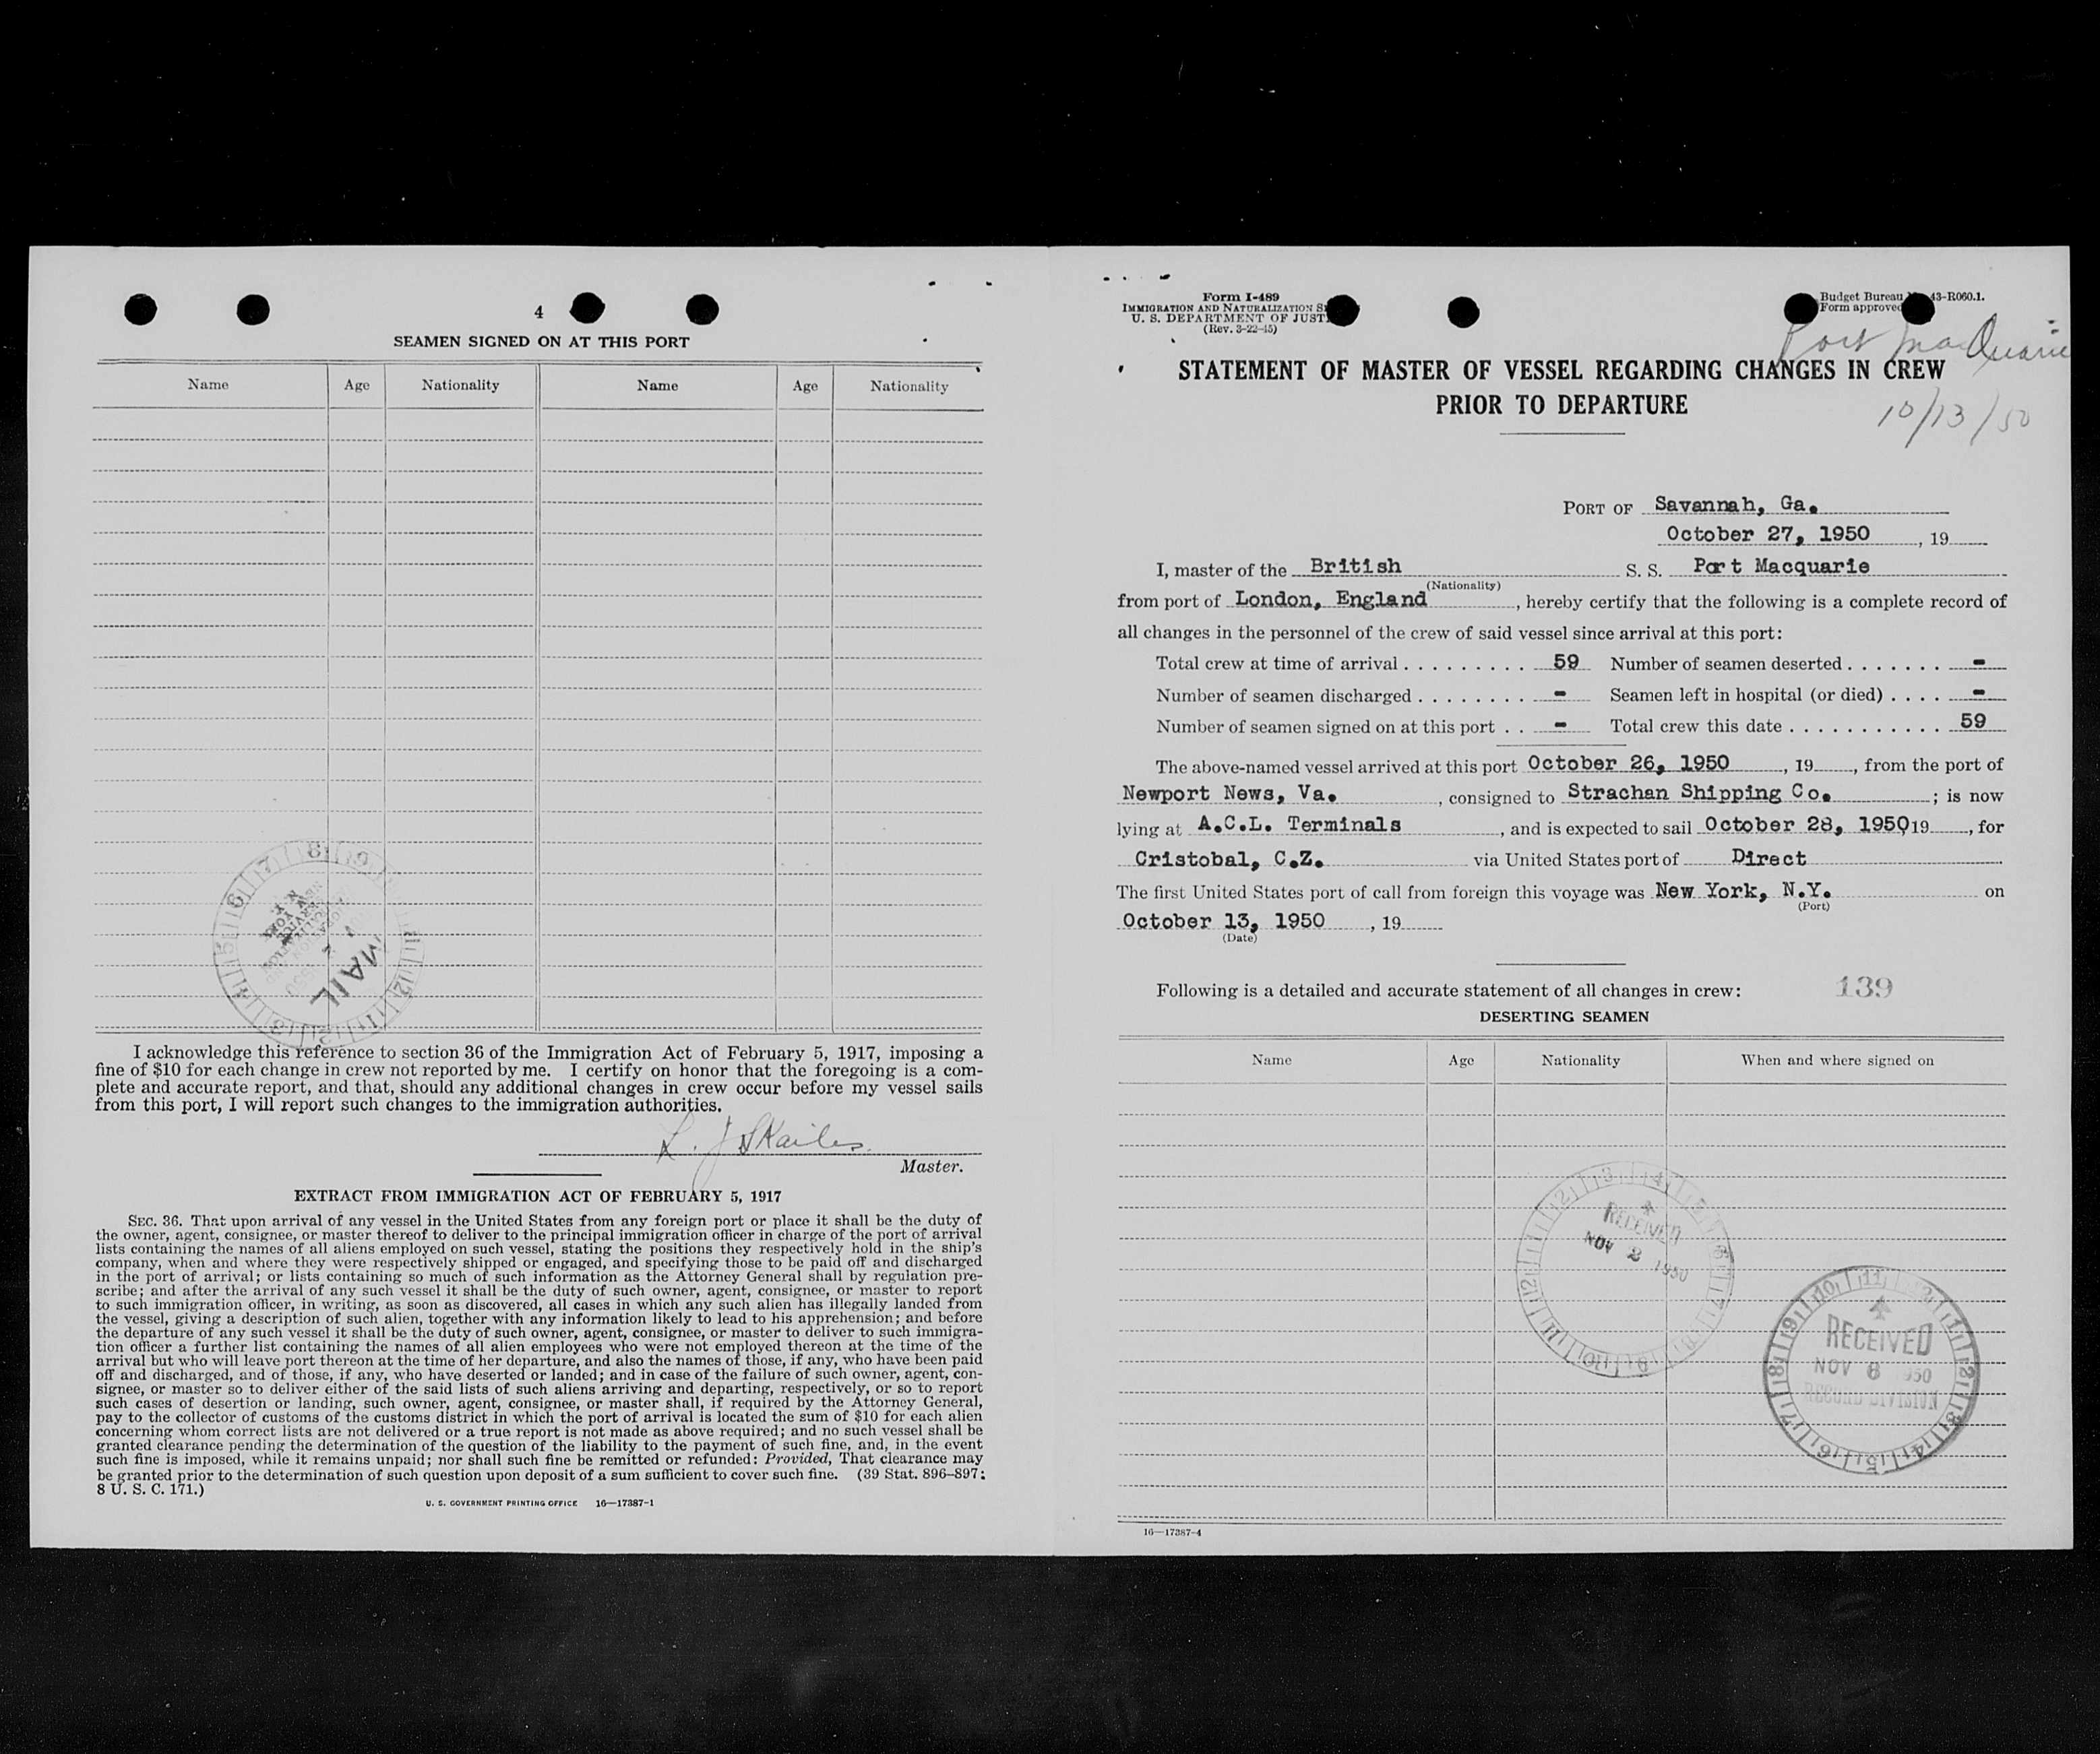 4
SEAMEN SIGNED ON AT THIS PORT
Name Age Nationality Name Age Nationality
MAIL
I acknowledge this reference to section 36 of the Immigration Act of February 5, 1917, imposing a
fine of $10 for each change in crew not reported by me. I certify on honor that the foregoing is a com-
plete and accurate report, and that, should any additional changes in crew occur before my vessel sails
from this port, I will report such changes to the immigration authorities.
L. J Skailes.
Master.
EXTRACT FROM IMMIGRATION ACT OF FEBRUARY 5, 1917
SEC. 36. That upon arrival of any vessel in the United States from any foreign port or place it shall be the duty of
the owner, agent, consignee, or master thereof to deliver to the principal immigration officer in charge of the port of arrival
lists containing the names of all aliens employed on such vessel, stating the positions they respectively hold in the ship's
company, when and where they were respectively shipped or engaged, and specifying those to be paid off and discharged
in the port of arrival; or lists containing so much of such information as the Attorney General shall by regulation pre-
scribe; and after the arrival of any such vessel it shall be the duty of such owner, agent, consignee, or master to report
to such immigration officer, in writing, as soon as discovered, all cases in which any such alien has illegally landed from
the vessel, giving a description of such alien, together with any information likely to lead to his apprehension; and before
the departure of any such vessel it shall be the duty of such owner, agent, consignee, or master to deliver to such immigra-
tion officer a further list containing the names of all alien employees who were not employed thereon at the time of the
arrival but who will leave port thereon at the time of her departure, and also the names of those, if any, who have been paid
off and discharged, and of those, if any, who have deserted or landed; and in case of the failure of such owner, agent, con-
signee, or master so to deliver either of the said lists of such aliens arriving and departing, respectively, or so to report
such cases of desertion or landing, such owner, agent, consignee, or master shall, if required by the Attorney General,
pay to the collector of customs of the customs district in which the port of arrival is located the sum of $10 for each alien
concerning whom correct lists are not delivered or a true report is not made as above required; and no such vessel shall be
granted clearance pending the determination of the question of the liability to the payment of such fine, and, in the event
such fine is imposed, while it remains unpaid; nor shall such fine be remitted or refunded: Provided, That clearance may
be granted prior to the determination of such question upon deposit of a sum sufficient to cover such fine. (39 Stat. 896–897;
8 U. S. C. 171.)
U. S. GOVERNMENT PRINTING OFFICE 16—17387-1
Form I-489
IMMIGRATION AND NATURALIZATION S
U. S. DEPARTMENT OF JUST
(Rev. 3-22-45)
Budget Bureau 43-R060.1.
Form approved
Port MacQuarie
STATEMENT OF MASTER OF VESSEL REGARDING CHANGES IN CREW
PRIOR TO DEPARTURE
10/13/50
PORT OF Savannah, Ga.
October 27, 1950, 19
I, master of the British S. S. Port Macquarie
(Nationality)
from port of London, England, hereby certify that the following is a complete record of
all changes in the personnel of the crew of said vessel since arrival at this port:
Total crew at time of arrival . . . . . . . . . 59 Number of seamen deserted . . . . . . . -
Number of seamen discharged . . . . . . . . . - Seamen left in hospital (or died) . . . . -
Number of seamen signed on at this port . . - Total crew this date . . . . . . . . . . . 59
The above-named vessel arrived at this port October 26, 1950, 19, from the port of
Newport News, Va., consigned to Strachan Shipping Co.; is now
lying at A.C.L. Terminals, and is expected to sail October 28, 1950, 19, for
Cristobal, C.Z. via United States port of Direct
The first United States port of call from foreign this voyage was New York, N.Y. on
(Port)
October 13, 1950, 19
(Date)
Following is a detailed and accurate statement of all changes in crew: 139
DESERTING SEAMEN
Name Age Nationality When and where signed on
RECEIVED
NOV 2 1950
RECEIVED
NOV 8 1950
RECORD DIVISION
16—17387-4